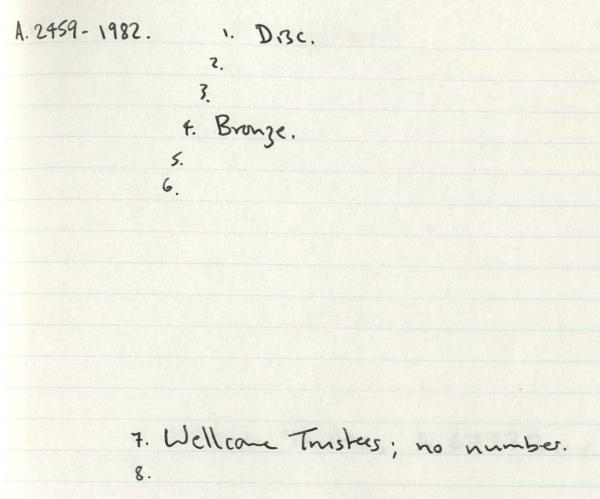 A.2459-1982. 1. Disc.
2.
3.
4. Bronze.
5.
6.
7. Wellcome Trustees; no number.
8.